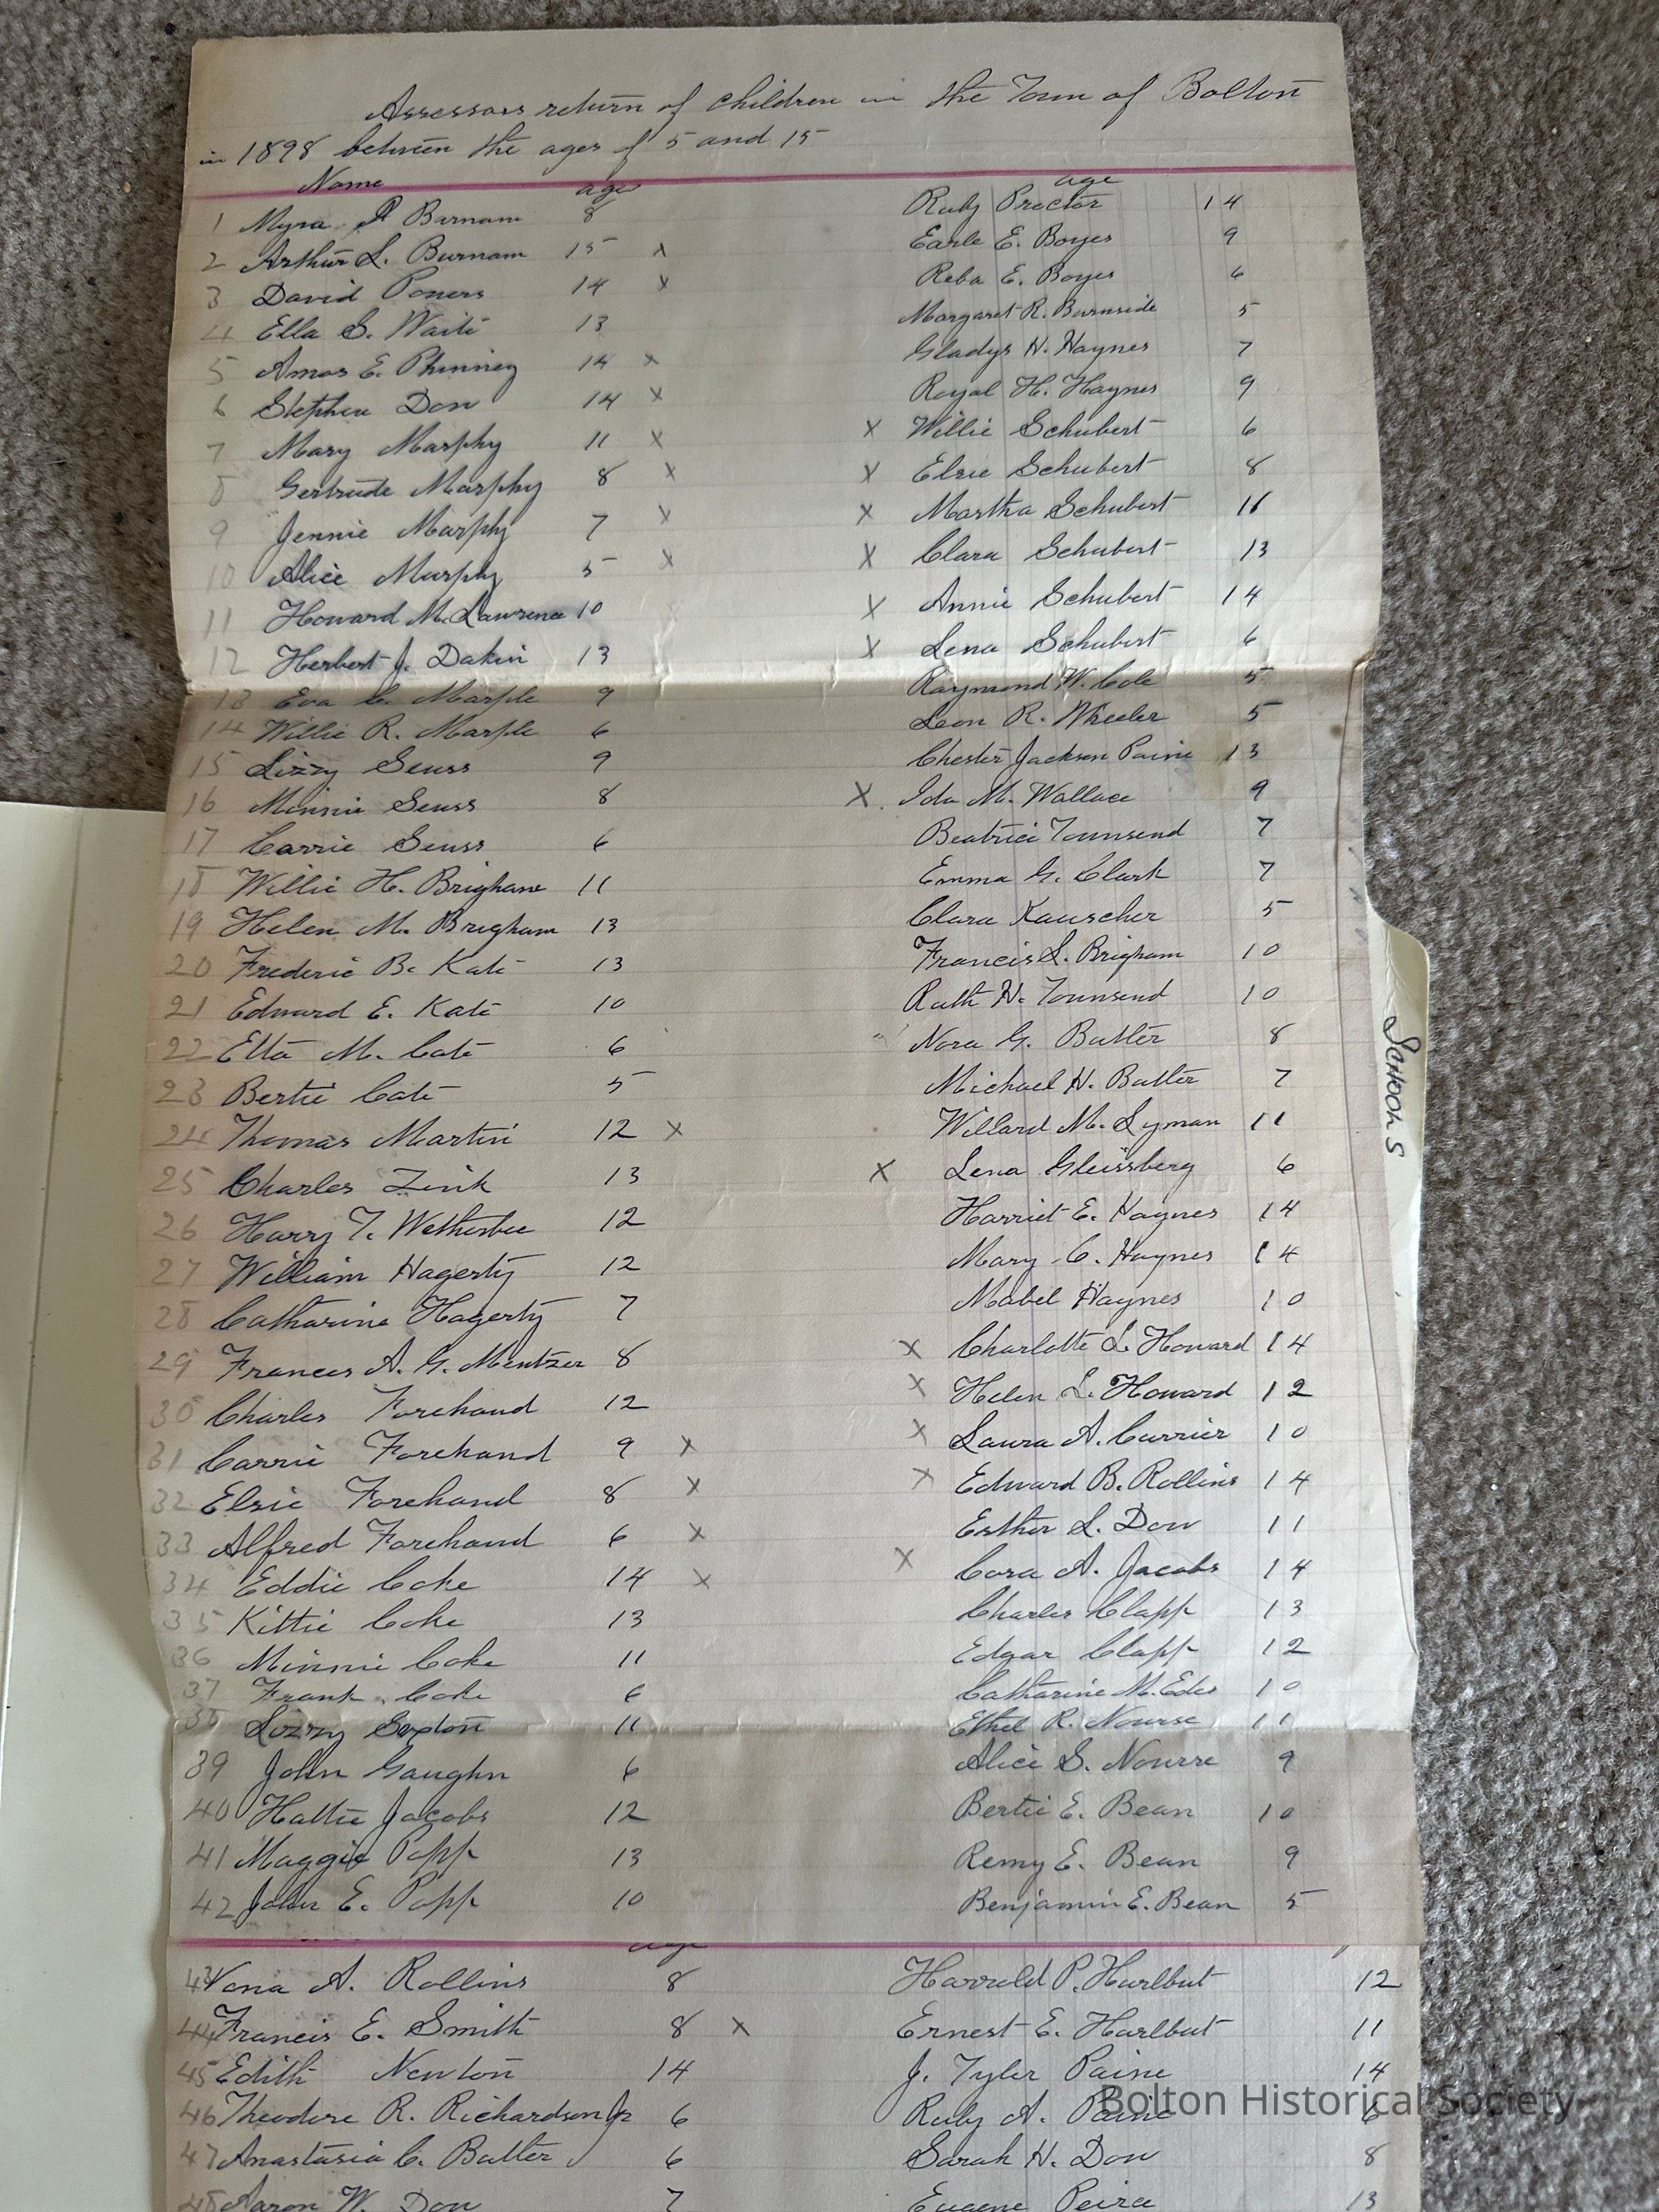 Assessors return of children in the Town of Bolton
in 1898 between the ages of 5 and 15
Name age
1 Myra P Burnam 8
2 Arthur L. Burnam 15 x
3 David Powers 14 x
4 Ella S. Waite 13
5 Amos E. Phinney 14 x
6 Stephen Dow 14 x
7 Mary Murphy 11 x
8 Gertrude Murphy 8 x
9 Jennie Murphy 7 x
10 Alice Murphy 5 x
11 Howard M. Lawrence 10
12 Herbert J. Dakin 13
13 Eva C. Marple 9
14 Willie R. Marple 6
15 Lizzy Seuss 9
16 Minnie Seuss 8
17 Carrie Seuss 6
18 Willie H. Brigham 11
19 Helen M. Brigham 13
20 Frederic B. Kate 13
21 Edward E. Kate 10
22 Etta M. Cate 6
23 Bertie Cate 5
24 Thomas Martin 12 x
25 Charles Zink 13
26 Harry T. Wetherbee 12
27 William Hagerty 12
28 Catharine Hagerty 7
29 Frances A. G. Mentzer 8
30 Charles Forehand 12
31 Carrie Forehand 9 x
32 Elsie Forehand 8 x
33 Alfred Forehand 6 x
34 Eddie Coke 14 x
35 Kittie Coke 13
36 Minnie Coke 11
37 Frank Coke 6
38 Lizzy Sexton 11
39 John Gaughn 6
40 Hattie Jacobs 12
41 Maggie Popp 13
42 John E. Popp 10
age
Ruby Proctor 14
Earle E. Boyes 9
Reba E. Boyes 6
Margaret R. Burnside 5
Gladys H. Haynes 7
Royal H. Haynes 9
x Willie Schubert 6
x Elsie Schubert 8
x Martha Schubert 11
x Clara Schubert 13
x Annie Schubert 14
x Lena Schubert 6
Raymond W. Cole 5
Leon R. Wheeler 5
Chester Jackson Paine 13
x Ida M. Wallace 9
Beatrice Townsend 7
Emma G. Clark 7
Clara Kauscher 5
Francis L. Brigham 10
Ruth H. Townsend 10
Nora G. Butler 8
Michael H. Butler 7
Willard M. Lyman 11
x Lena Gleissberg 6
Harriet E. Haynes 14
Mary C. Haynes 14
Mabel Haynes 10
x Charlotte L. Howard 14
x Helen L. Howard 12
x Laura A. Currier 10
x Edward B. Rollins 14
Esther L. Dow 11
x Cora A. Jacobs 14
Charles Clapp 13
Edgar Clapp 12
Catharine M. Edes 10
Ethel R. Nourse 11
Alice S. Nourse 9
Bertie E. Bean 10
Remy E. Bean 9
Benjamin E. Bean 5
age
43 Vona A. Rollins 8
44 Francis E. Smith 8 x
45 Edith Newton 14
46 Theodore R. Richardson Jr 6
47 Anastasia C. Butler 6
48 Aaron W. Dow 7
Harrold P. Hurlbut 12
Ernest E. Hurlbut 11
J. Tyler Paine 14
Ruby A. Paine 6
Sarah H. Dow 8
Eugene Peira 13
SCHOOLS
Bolton Historical Society